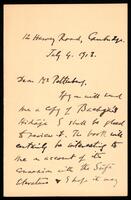 12 Harvey Road, Cambridge.
July 4. 1913.
Dear Mr Pattenburg,
If you will send
me a copy of
I shall be glad
to review it. The book will
certainly be interesting to
me on account of its
connexion with the
& I hope it may